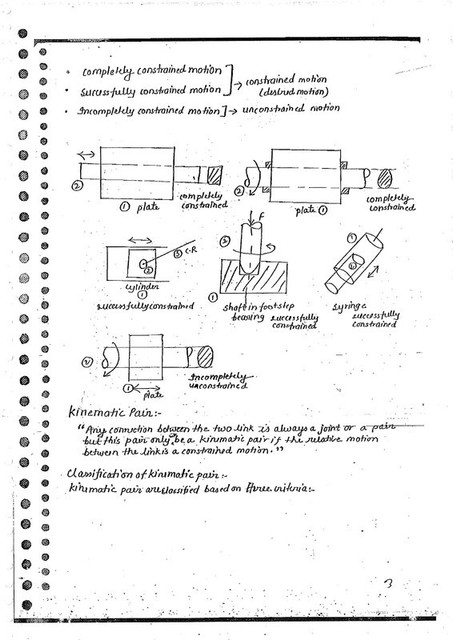 • Completely constrained motion
• Sucessfully constrained motion
→ constrained motion
(desired motion)
• Incompletely constrained motion] → unconstrained motion
②
① plate
completely
constrained
②
plate ①
completely
constrained
③ C.R
②
Cylinder
①
successfully constrained
F
②
①
Shaft in footstep
bearing successfully
constrained
①
②
Syringe
successfully
constrained
②
①
plate
Incompletely
unconstrained
Kinematic Pair:-
"Any connection between the two link is always a joint or a pair
but this pair only be a kinematic pair if the relative motion
between the link is a constrained motion."
Classification of kinematic pair:-
kinematic pair are classified based on three criteria:-
3